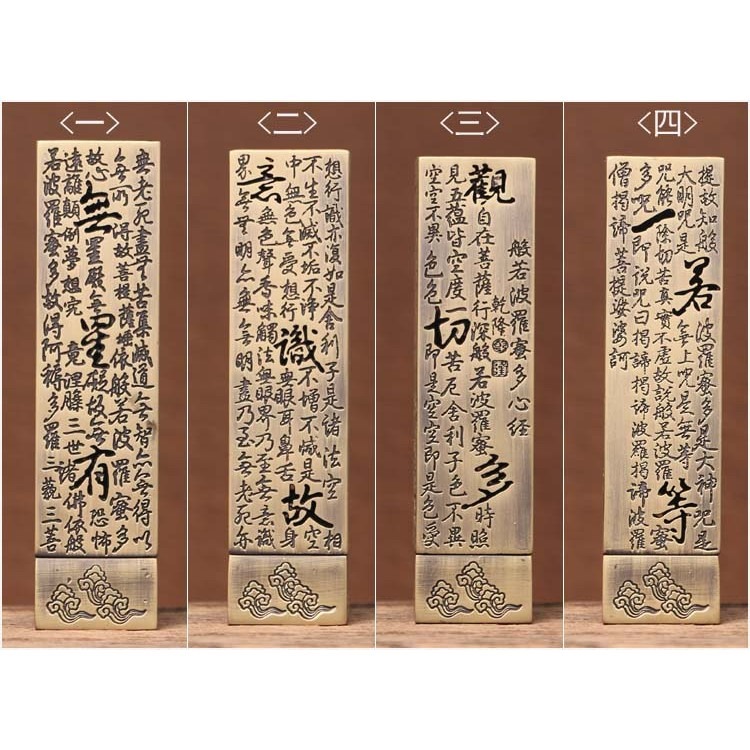 〈一〉
無老死盡無苦集滅道無智亦無得以
無所得故菩提薩埵依般若波羅蜜多
故心無罣礙無罣礙故無有恐怖
遠離顛倒夢想究竟涅槃三世諸佛依般
若波羅蜜多故得阿耨多羅三藐三菩
〈二〉
想行識亦復如是舍利子是諸法空相
不生不滅不垢不淨不增不減是故空
中無色無受想行識無眼耳鼻舌身
意無色聲香味觸法無眼界乃至無意識
界無無明亦無無明盡乃至無老死亦
〈三〉
般若波羅蜜多心經
乾隆
觀自在菩薩行深般若波羅蜜多時照
見五蘊皆空度切苦厄舍利子色不異
空空不異色色即是空空即是色受
〈四〉
提故知般若波羅蜜多是大神呪是
大明呪是無上呪是無等等
呪能除一切苦真實不虛故說般若波羅蜜
多呪即說呪曰揭諦揭諦波羅揭諦波羅
僧揭諦菩提娑婆訶